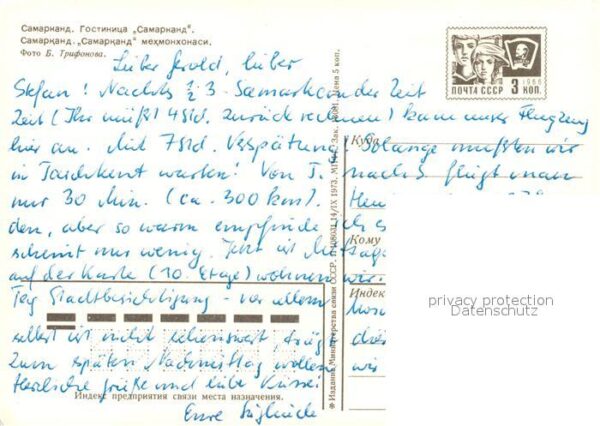 Самарканд. Гостиница „Самарканд".
Самарқанд. „Самарқанд" меҳмонхонаси.
Фото Б. Трифонова.
ПОЧТА СССР 3 КОП.
1966
Lieber Jerold, lieber
Stefan! Nachts ½ 3 Samarkander Zeit
Zeit (Ihr müßt 4 Std. zurückrechnen) kam unser Flugzeug
hier an. Mit 7 Std. Verspätung! Solange mußten wir
in Taschkent warten! Von T. nachs. fliegt man
nur 30 Min. (ca. 300 km). Heu
den, aber so warm empfinde ich es
scheint nur wenig. Jetzt ist Mittags
auf der Karte (10. Etage) wohnen wir.
Tag Stadtbesichtigung - vor allem Mos
selbst ist nicht sehenswert, dies
Zum späten Nachmittag wollen wir
Herzliche Grüße und liebe Küsse!
Eure
Куда
Кому
Индекс
Индекс предприятия связи места назначения.
Издание Министерства связи СССР. 14/IX 1973. Цена 5 коп.
privacy protection
Datenschutz